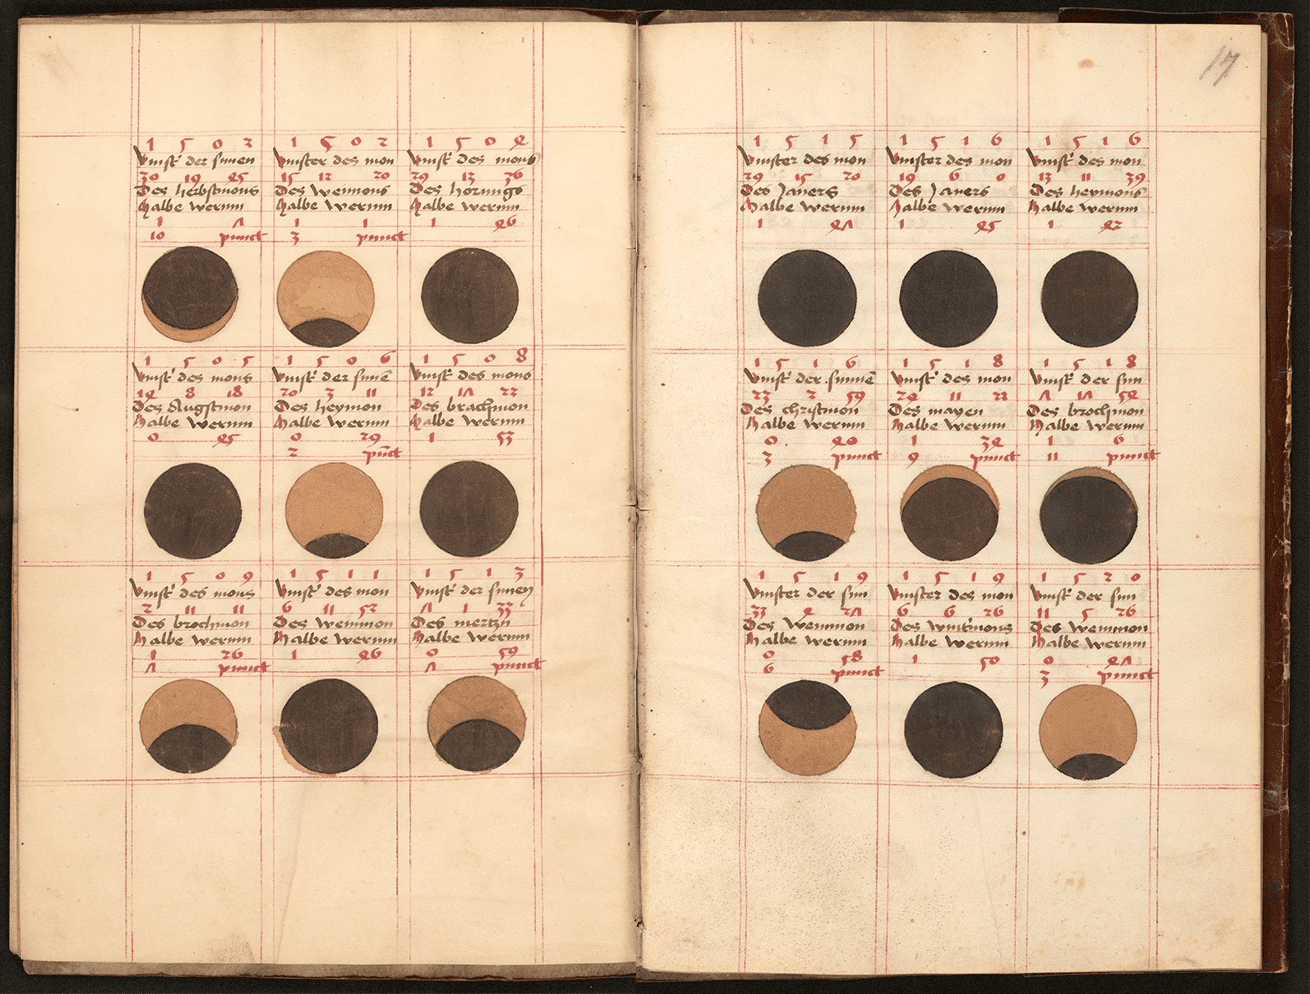 1 5 0 2
vinst' der sunen
30 19 45
Des herbstmons
Halbe werunn
1 7
10 punct
1 5 0 2
vinster des mon
15 12 20
Des Weinmons
Halbe werunn
1 1
3 punct
1 5 0 4
vinst' des mons
29 13 36
Des hornungs
Halbe werunn
1 46
1 5 0 5
vinst' des mons
14 8 18
Des Augstmon
Halbe werunn
0 45
1 5 0 6
vinst' der sunē
20 3 11
Des heymon
Halbe werunn
0 29
2 pūct
1 5 0 8
vinst' des mons
12 17 22
Des brachmon
Halbe werunn
1 53
1 5 0 9
vinst' des mons
2 11 11
Des brochmon
Halbe werunn
1 26
7 punct
1 5 1 1
vinst' des mon
6 11 52
Des Weinmon
Halbe werunn
1 46
1 5 1 3
vinst' der sunen
7 1 33
Des mertzn
Halbe werunn
0 59
7 punct
17
1 5 1 5
vinster des mon
29 15 20
Des Jeners
Halbe werunn
1 47
1 5 1 6
vinster des mon
19 6 0
Des Jeners
Halbe werunn
1 45
1 5 1 6
vinst' des mon
13 11 39
Des heymons
Halbe werunn
1 42
1 5 1 6
vinst' der sunnē
23 2 59
Des christmon
Halbe werunn
0 40
3 punct
1 5 1 8
vinst' des mon
24 11 22
Des mayen
Halbe werunn
1 34
9 punct
1 5 1 8
vinst' der sun
7 17 54
Des brochmon
Halbe werunn
1 6
11 punct
1 5 1 9
vinster der sun
23 4 27
Des Weinmon
Halbe werunn
0 58
6 punct
1 5 1 9
vinster des mon
6 6 26
Des Wintmons
Halbe werunn
1 50
1 5 2 0
vinst' der sun
11 5 26
Des weinmon
Halbe werunn
0 47
3 punct